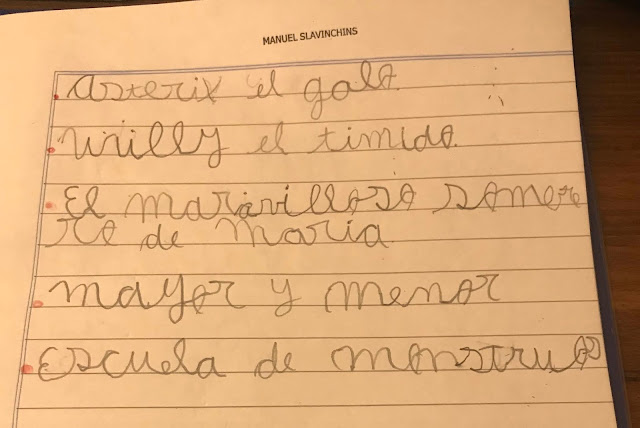 MANUEL SLAVINCHINS
asterix el galo.
Willy el timido.
El maravilloso sombre
ro de maria.
mayor y menor
Escuela de monstruos